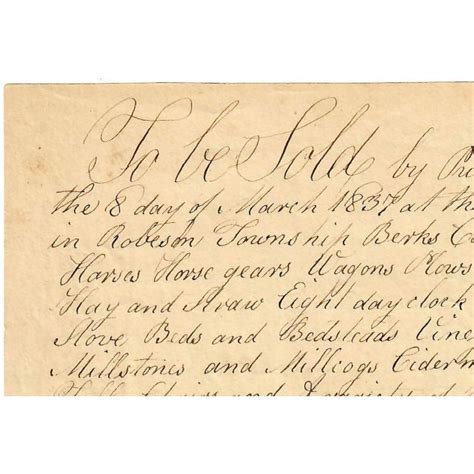 To be Sold by
the 8 day of March 1837 at
in Robeson Township Berks
Horses Horse gears Wagons Plows
Hay and Straw Eight day clock
Stove Beds and Bedsteads
Millstones and Millcogs
and